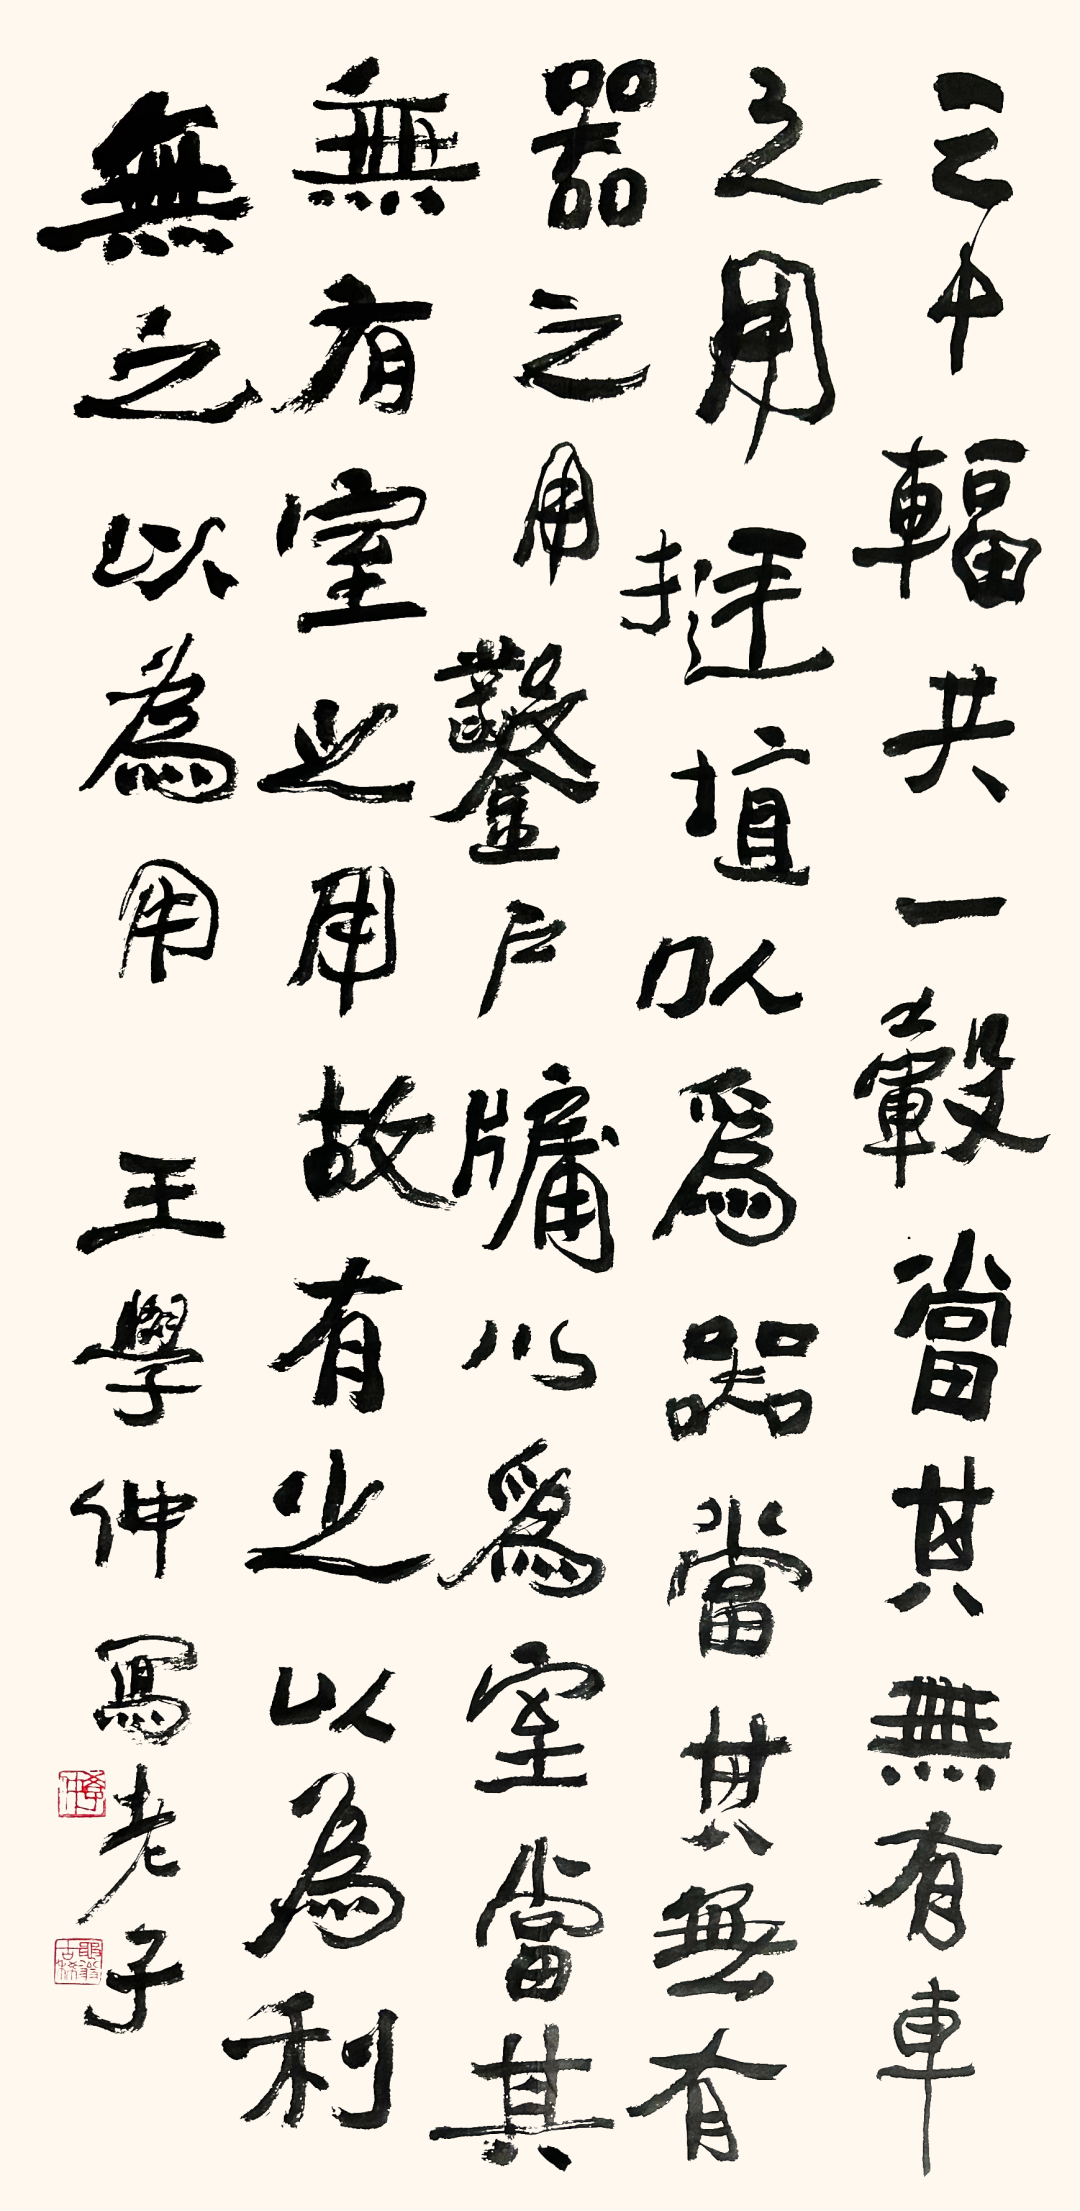 三十輻共一轂當其無有車
之用挻埴以爲器當其無有
器之用鑿户牖以爲室當其
無有室之用故有之以為利
無之以為用 王學仲寫老子